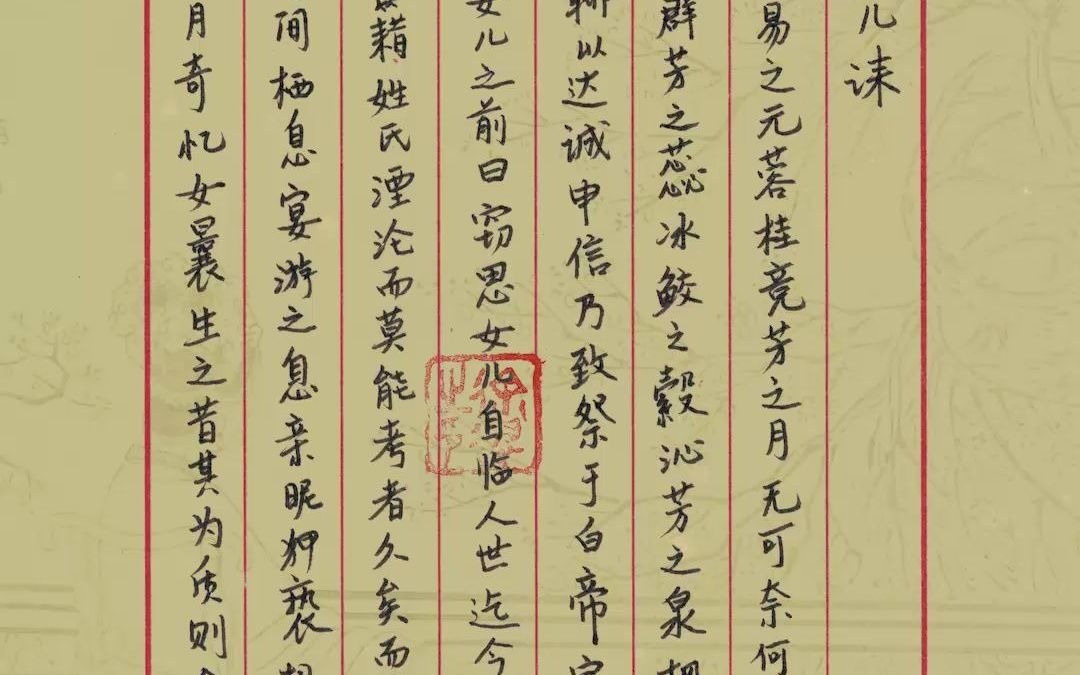 儿诔
易之元蓉桂竞芳之月无可奈何
群芳之蕊冰鲛之縠沁芳之泉枫
聊以达诚申信乃致祭于白帝宫
女儿之前曰窃思女儿自临人世迄今
籍姓氏湮沦而莫能考者久矣而
间栖息宴游之息亲昵狎亵相
月奇忆女曩生之昔其为质则